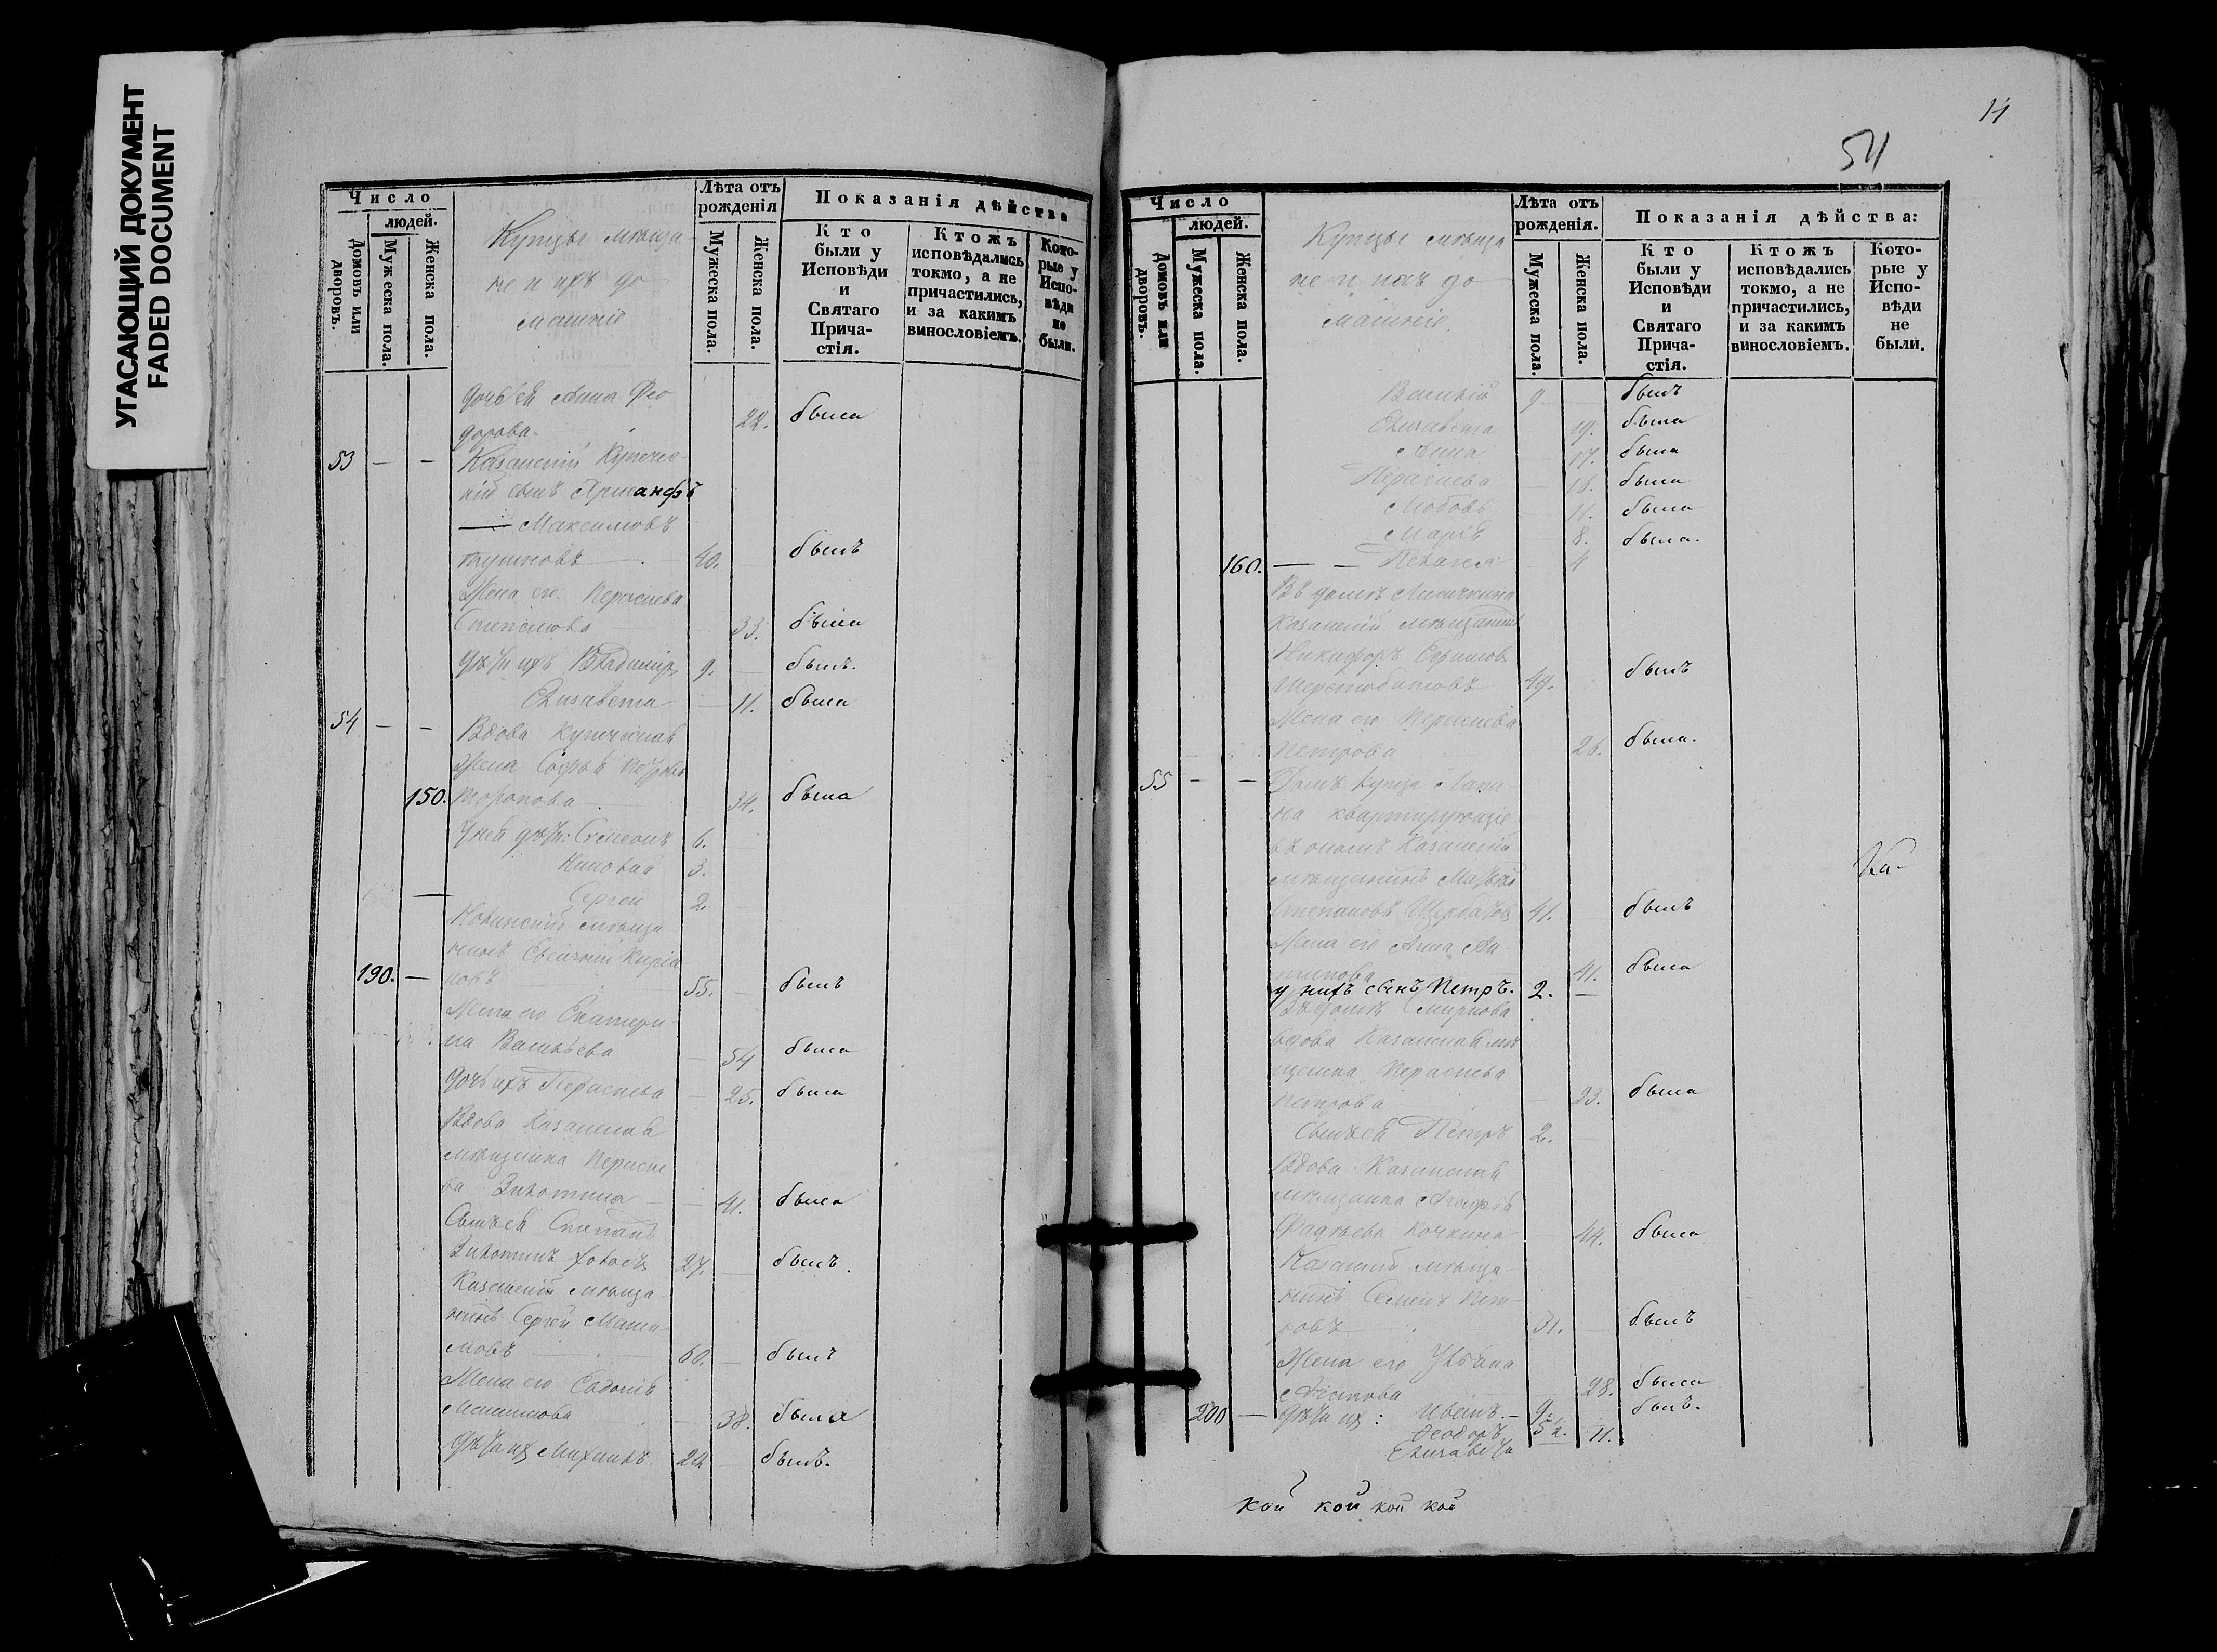 УГАСАЮЩИЙ ДОКУМЕНТ
FADED DOCUMENT
Число
людей.
Домовъ или дворовъ.
Мужеска пола.
Женска пола.
Купцы мѣща-
не и ихъ до
машніе
Лѣта отъ рожденія
Мужеска пола.
Женска пола.
Показанія дѣйства
Кто были у Исповѣди и Святаго Причастія.
Ктожъ исповѣдались токмо, а не причастились, и за какимъ винословіемъ.
Которые у Исповѣди не были.
дочь ей Анна Фео
дорова 22. была
53 — — Казанскій Купечес
кій сынъ Хрисанфъ
Максимовъ
40. былъ
Жена его Пераскева
Степанова 33. была
дѣти ихъ Владиміръ 9. былъ.
Елизавета 11. была
54 — — Вдова купеческая
жена Софья Петрова
150. Торопова 34. была
У ней дѣти: Симеонъ 6.
3.
Сергей 2.
мѣща
нинъ Евгеній Кирил
190. — ловъ 55. — былъ
Жена его Екатери
на Васильева — 54 была
дочь ихъ Пераскева — 25. была
Вдова Казанская
мѣщанка Пераске
ва Зиновьева — 41. была
Сынъ ей Степанъ
27. былъ.
Казанскій мѣща
нинъ Сергей Макси
мовъ 60. — былъ
Жена его Евдокія
— 38. была
Дѣти ихъ Михаилъ 22 — былъ.
14
54
Число
людей.
Домовъ или дворовъ.
Мужеска пола.
Женска пола.
Купцы мѣща
не и ихъ до
машніе.
Лѣта отъ рожденія.
Мужеска пола.
Женска пола.
Показанія дѣйства:
Кто были у Исповѣди и Святаго Причастія.
Ктожъ исповѣдались токмо, а не причастились, и за какимъ винословіемъ.
Которые у Исповѣди не были.
Василій 9. былъ
Елизавета 19. была
Анна 17. была
Пераскева 16. была
Любовь 11. была
Марія 8. была.
160. — — Пелагея 4
Въ домѣ
Казанскій мѣщанинъ
Никифоръ Ефимовъ
Шерстобитовъ 49. былъ
Жена его Пераскева
Петрова 26. была.
55 — — Домъ купца
на квартирующіе
въ ономъ Казанскій
мѣщанинъ Матвей
Степановъ Щербаковъ 41. былъ
Жена его Анна Ан
типова 41. была
у нихъ сынъ Петръ. 2. —
Въ домѣ Смирнова
вдова Казанская мѣ
щанка Пераскева
Петрова — 23. была
Сынъ ей Петръ 2.
Вдова Казанская
мѣщанка Агафья
Фадѣева Кочкина 44. была
Казанскій мѣща
нинъ Семенъ Пет
ровъ 31. былъ
Жена его Ульяна
28. была
200 — дѣти ихъ: Иванъ. — 9. былъ.
Феодоръ 5
Елизавета 11.
кой кой кой кой